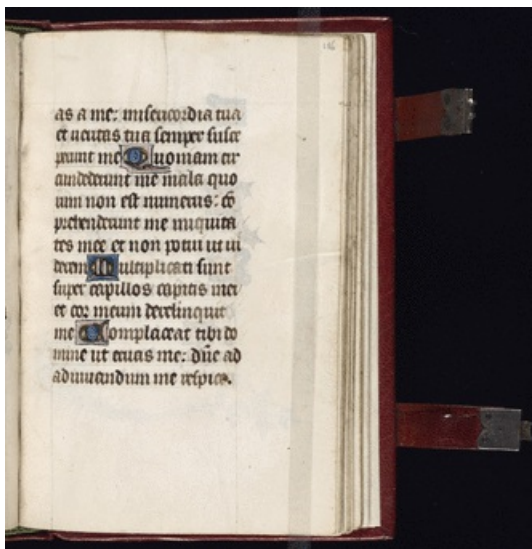 as a me: misericordia tua
et veritas tua semper susce
perunt me Quoniam cir
cumdederunt me mala quo
rum non est numerus: cō
prehenderunt me iniquita
tes mee et non potui ut vi
derem Multiplicati sunt
super capillos capitis mei
et cor meum dereliquit
me Complaceat tibi do
mine ut eruas me: dn̄e ad
adiuvandum me respice.